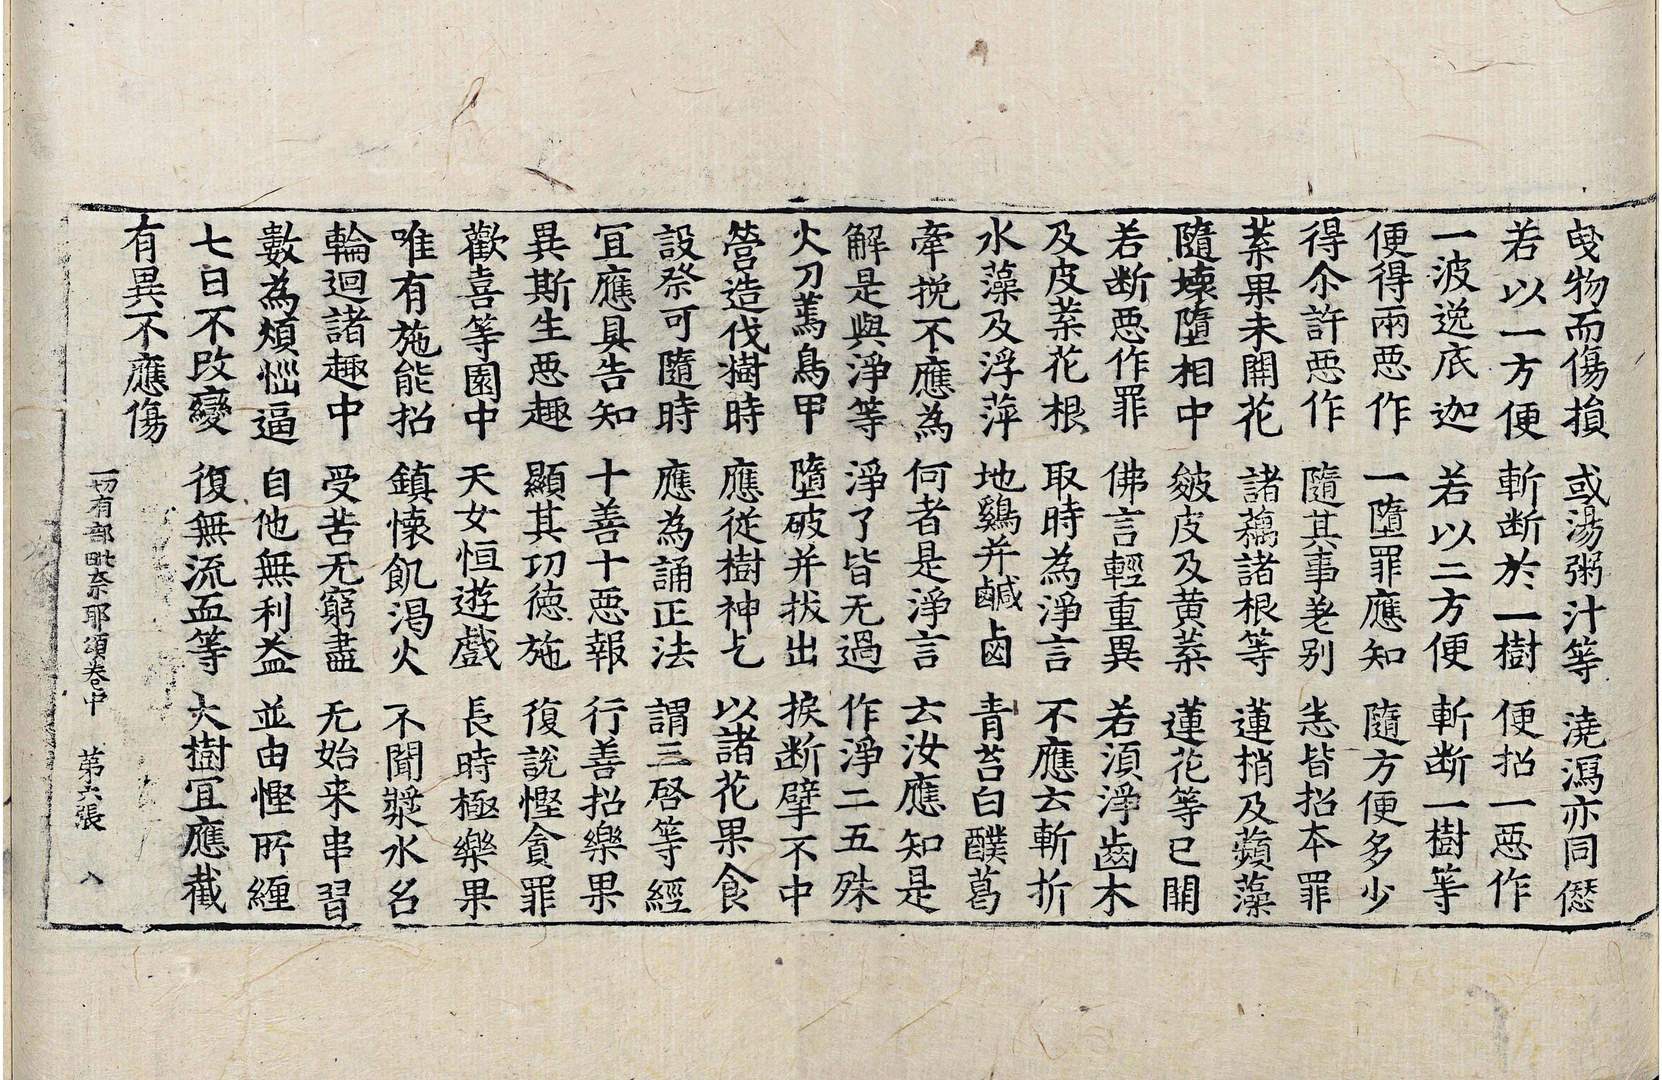 曵物而傷損 或湯粥汁等 澆瀉亦同愆
若以一方便 斬断於一樹 便招一惡作
一波逸底迦 若以二方便 斬断一樹等
便得兩惡作 一墮罪應知 隨方便多少
得尒許惡作 隨其事差别 恙皆招本罪
葉果未開花 諸藕諸根等 蓮梢及蘋藻
隨壞墮相中 皴皮及黄葉 蓮花等已開
若断惡作罪 佛言輕重異 若湏淨齒木
及皮葉花根 取時為淨言 不應云斬折
水藻及浮萍 地鷄并鹹鹵 青苔白醭葛
牽挽不應為 何者是淨言 云汝應知是
解是與淨等 淨了皆无過 作淨二五殊
火刀蔫鳥甲 墮破并拔出 捩断擘不中
營造伐樹時 應従樹神乞 以諸花果食
設祭可隨時 應為誦正法 謂三啓等經
冝應具告知 十善十惡報 行善招樂果
異斯生惡趣 顯其功徳施 復說慳貪罪
歡喜等園中 天女恒遊戲 長時極樂果
唯有施能招 鎮懐飢渴火 不聞漿水名
輪迴諸趣中 受苦无窮盡 无始来串習
數為煩惱逼 自他無利益 並由慳所纒
七日不改變 復無流血等 大樹冝應截
有異不應傷
一切有部毗奈耶頌卷中 第六張 入